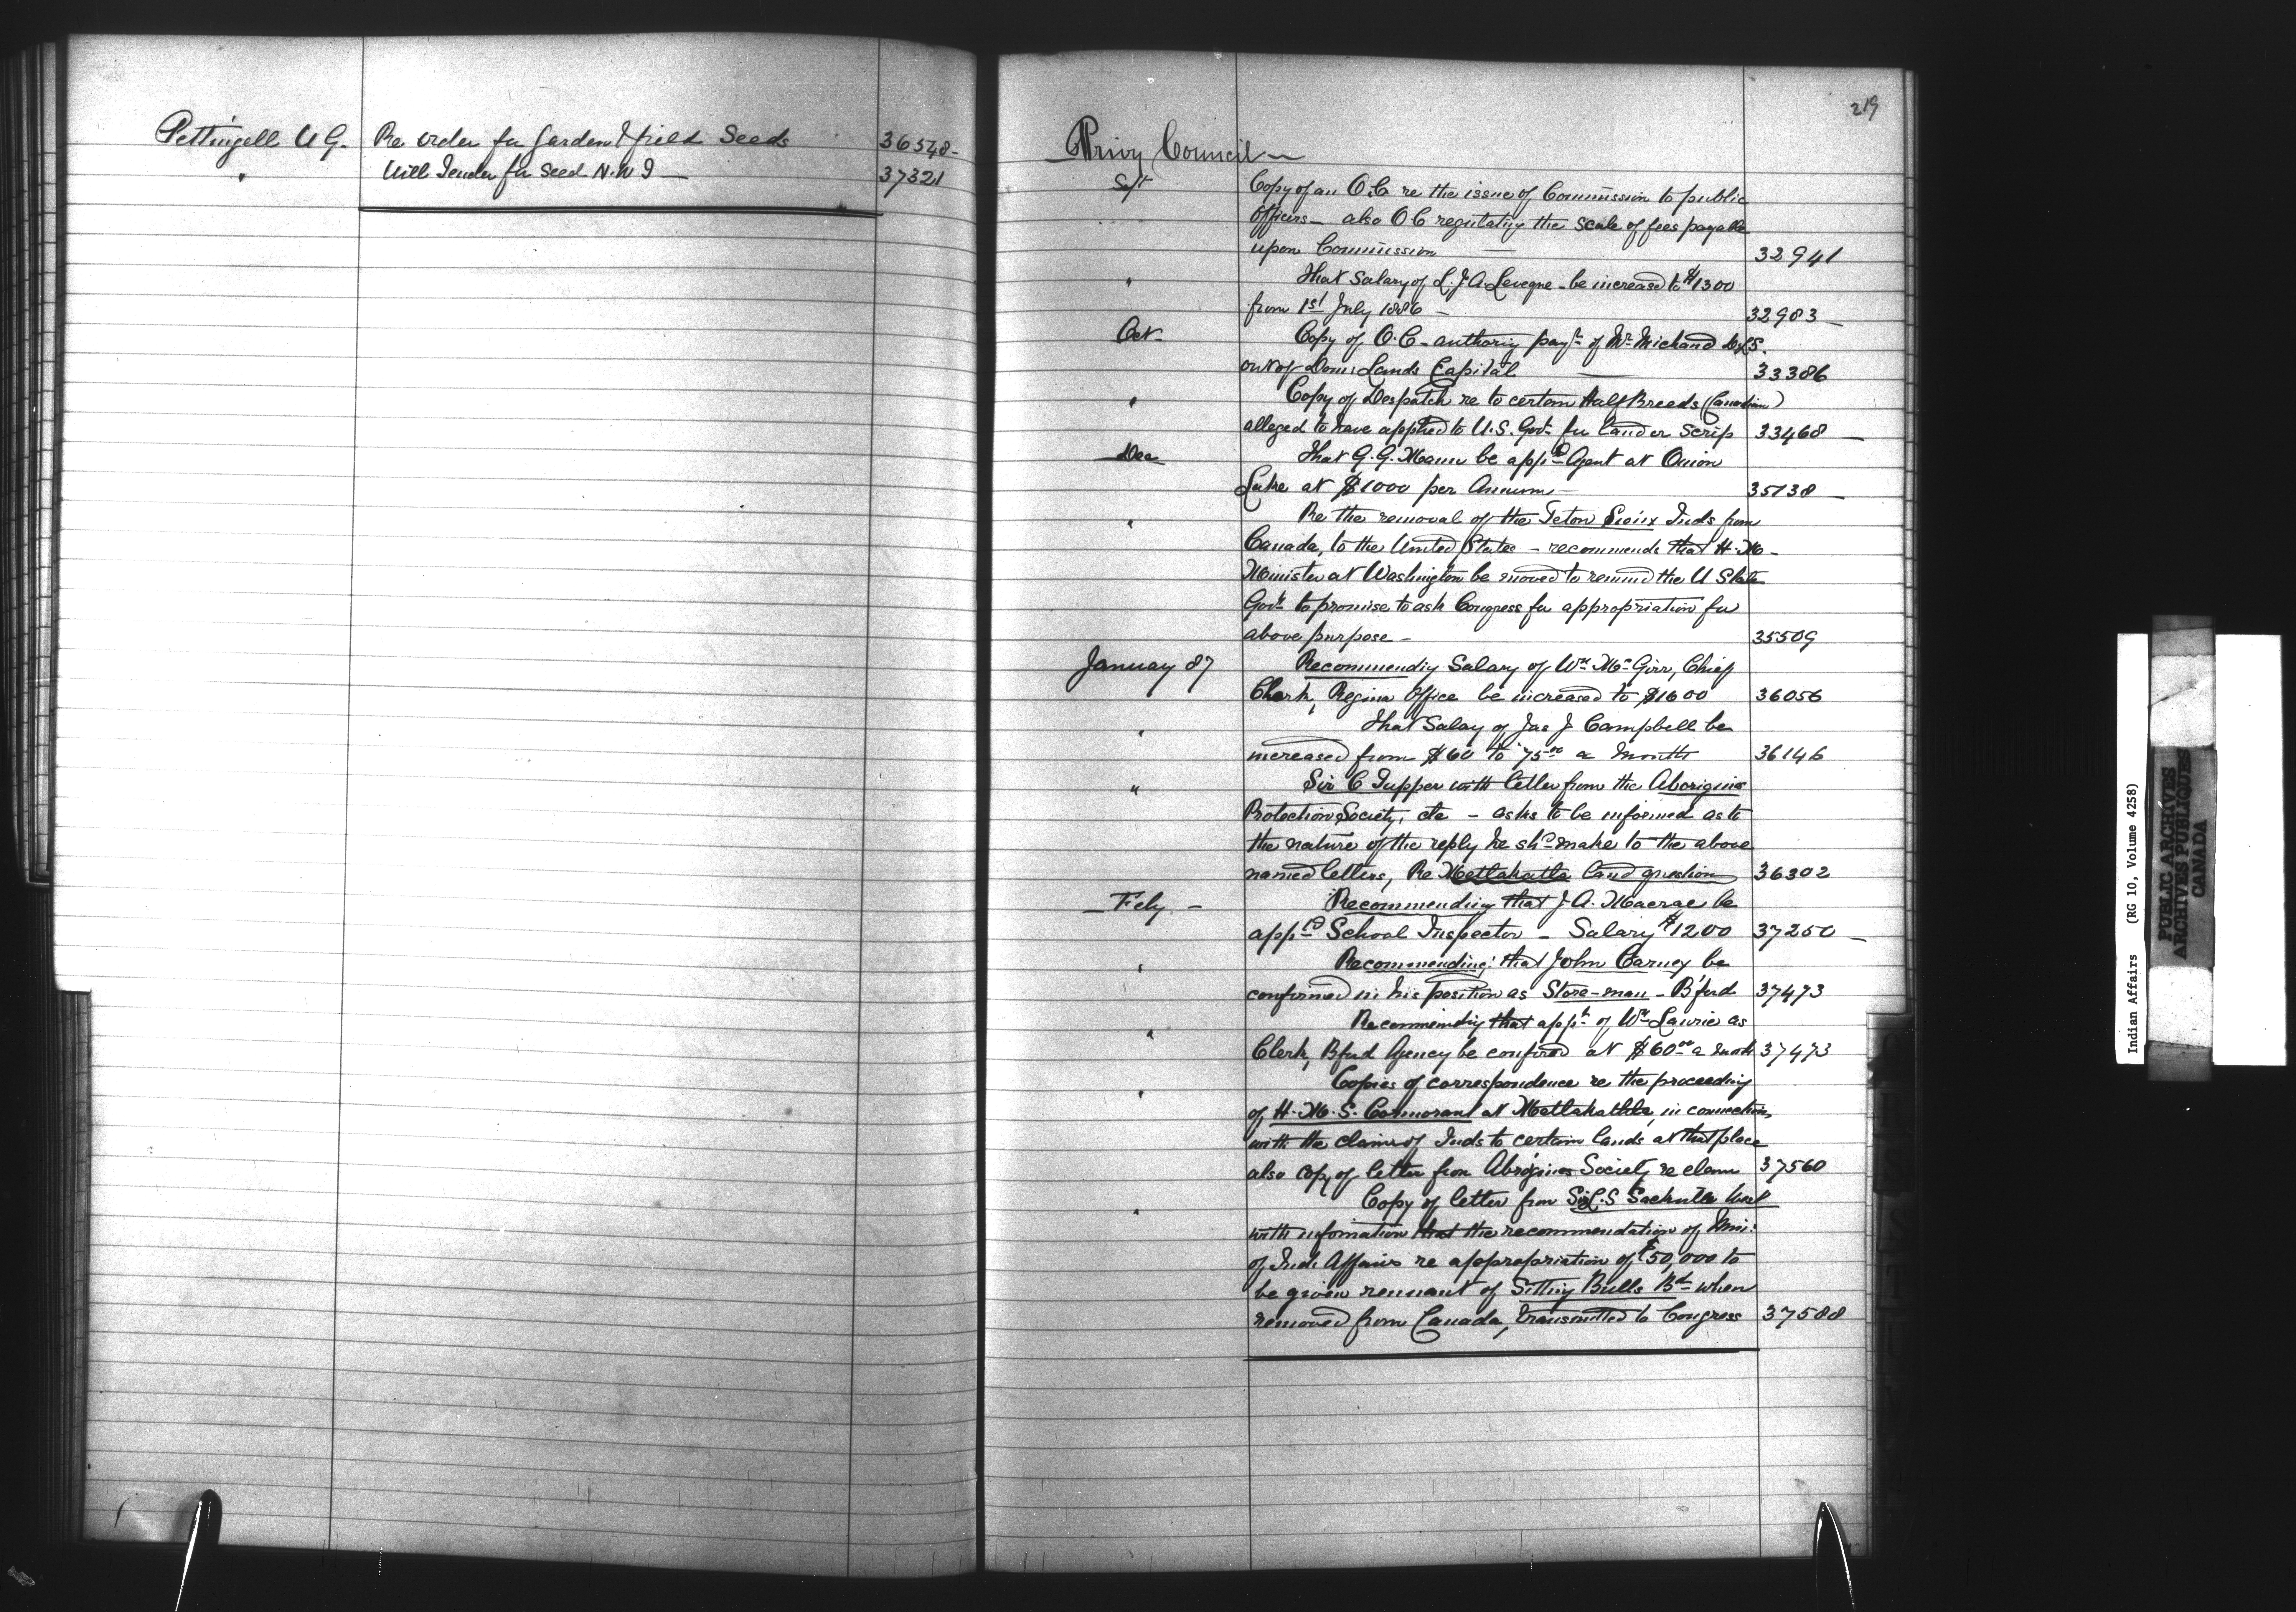 Pettingell U G. Re order for Garden & field Seeds 36548-
" Will Tender for Seed N.W T — 37321
219
Privy Council —
Spt Copy of an O.C. re the issue of Commission to public
officers — also O C regulating the scale of fees payable
upon Commission — 32941
" That Salary of L. J. A. Leveque - be increased to $1300
from 1st July 1886 — 32983 —
Oct Copy of O.C - authorig payt of Wm Michaud D.L.S.
out of Domn Lands Capital — 33386
" Copy of Despatch re to certain Half Breeds (Canadian)
alleged to have applied to U.S. Govt for land or scrip 33468 —
Dec That G. G. Mann be appd Agent at Onion
Lake at $1000 per Annum — 35138 —
" Re the removal of the Teton Sioux Inds from
Canada, to the United States — recommends that H. M.
Minister at Washington be moved to remind the U State
Govt to promise to ask Congress for appropriation for
above purpose — 35509
January 87 Recommendig Salary of Wm McGirr, Chief
Clerk, Regina Office be increased to $1600 36056
" That Salary of Jas J Campbell be
increased from $60 to 75.00 a month 36146
" Sir C Tupper with letter from the Aborigins
Protection Society, etc — asks to be informed as to
the nature of the reply he shd make to the above
named letters, Re Metlakatla land question 36302
— Feby — Recommending that J. A. Macrae be
appd School Inspector — Salary $1200 37250 —
" Recommending that John Carney be
confirmed in his position as Store-man - B'ford 37473
" Recommendig that appt of Wm Laurie as
Clerk, Bford Agency be confirmd at $60.00 a month 37473
" Copies of correspondence re the proceeding
of H. M. S. Cormorant at Metlakatla, in connection,
with the claims of Inds to certain lands at that place
also copy of letter from Aborigines Society re claim 37560
" Copy of letter from Sir L. S Sackville West
with information that the recommendation of Min:
of Indn Affairs re appropriation of $50,000 to
be given remnant of Sitting Bulls Bd when
removed from Canada, transmitted to Congress 37588
Indian Affairs (RG 10, Volume 4258)
PUBLIC ARCHIVES
ARCHIVES PUBLIQUES
CANADA